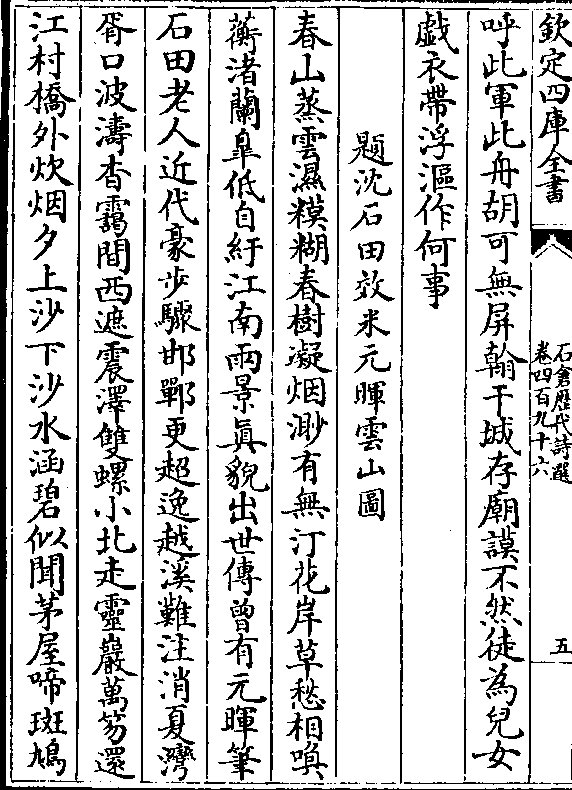 欽定四庫全書
石倉歷代詩選
卷四百九十六
五
呼此軍此舟胡可無屏翰干城存廟謨不然徒為兒女
戲衣帶浮漚作何事
題沈石田效米元暉雲山圖
春山蒸雲濕糢糊春樹凝烟渺有無汀花岸草愁相喚
蘅渚蘭臯低自紆江南雨景真貌出世傳曾有元暉筆
石田老人近代豪步驟邯鄲更超逸越溪難注消夏灣
胥口波濤杳靄間西遮震澤雙螺小北走靈巖萬笏還
江村橋外炊烟夕上沙下沙水涵碧似聞茅屋啼斑鳩